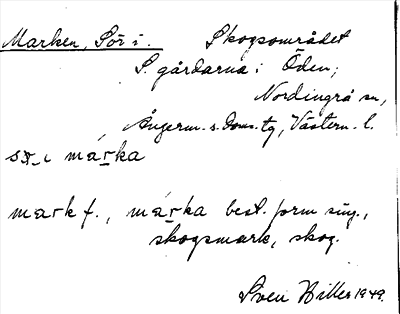 Marken, Sör i. Skogsområdet
S. gårdarna i Öden;
Nordingrå sn,
Ångerm. s. doms. tg, Västern. l.
i márka
mark f., márka best. form sing.,
skogsmark, skog.
Sven Hiller 1949.